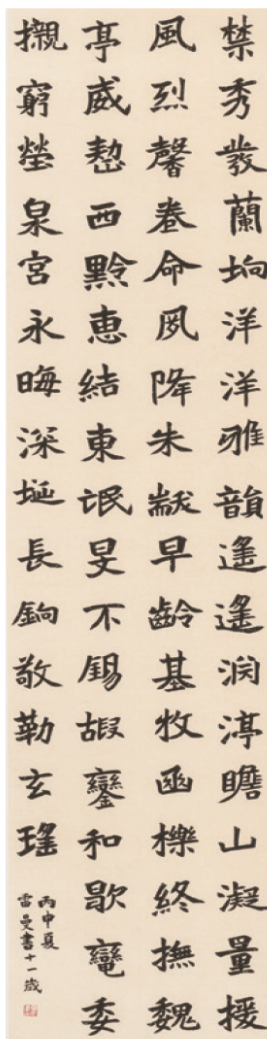 禁秀發蘭坰洋洋雅韻遙遙渊渟瞻山凝量援
風烈馨卷命夙降朱黻早齡基牧函櫟終撫魏
亭威愸西黔恵結東氓旻不錫嘏鑾和歇鸞委
櫬窮塋泉宮永晦深埏長銄敬勒玄瑤
丙申夏
雷曼書十一歲